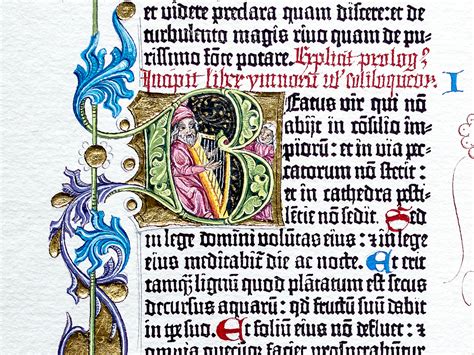 et videre preclara quam discere: et de
turbulento magis rivo quam de pu-
rissimo fonte potare. Explicit prologꝰ
Incipit liber ymnorũ vel soliloquiorũ I
Beatus vir qui nõ
abijt in cõsilio im-
piorũ: et in via pec-
catorum nõ stetit:
et in cathedra pesti-
lẽtie nõ sedit. Sed
in lege domini volũtas eius: ⁊ in lege
eius meditabit̃ die ac nocte. Et erit
tamq̃ lignũ quod plãtatum est secus
decursus aquarũ: qd̃ fructũ suũ dabit
in tp̃e suo. Et foliũ eius nõ defluet: ⁊
omnia quecũqꝫ faciet prosperabũtur